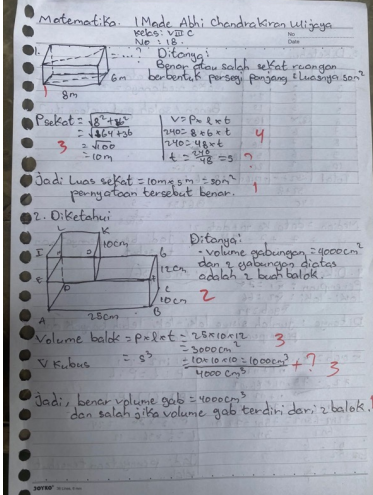 Matematika. I Made Abhi Chandrakiran Wijaya
Kelas: VIII C
No : 18.
No
Date
1. = ...? Ditanya:
Benar atau salah sekat ruangan
berbentuk persegi panjang & luasnya 50m²
6m
8m
1
Psekat = √8² + 6²
= √64+36
= √100
= 10m
3
V = P × l × t
240 = 8 × 6 × t
240 = 48 × t
t = 240/48 = 5
4
?
Jadi Luas sekat = 10m × 5m = 50m²
pernyataan tersebut benar.
1
2. Diketahui
L K
10cm
I G
12cm
E C
10cm
A 25cm B
Ditanya:
- Volume gabungan = 4000cm²
dan 2 gabungan diatas
adalah 2 buah balok.
2
Volume balok = P × l × t = 25 × 10 × 12
= 3000cm²
3
V Kubus = s³ = 10×10×10 = 1000cm³ +
?
3
4000 cm³
Jadi, benar volume gab = 4000cm³
dan salah jika volume gab terdiri dari 2 balok.
JOYKO